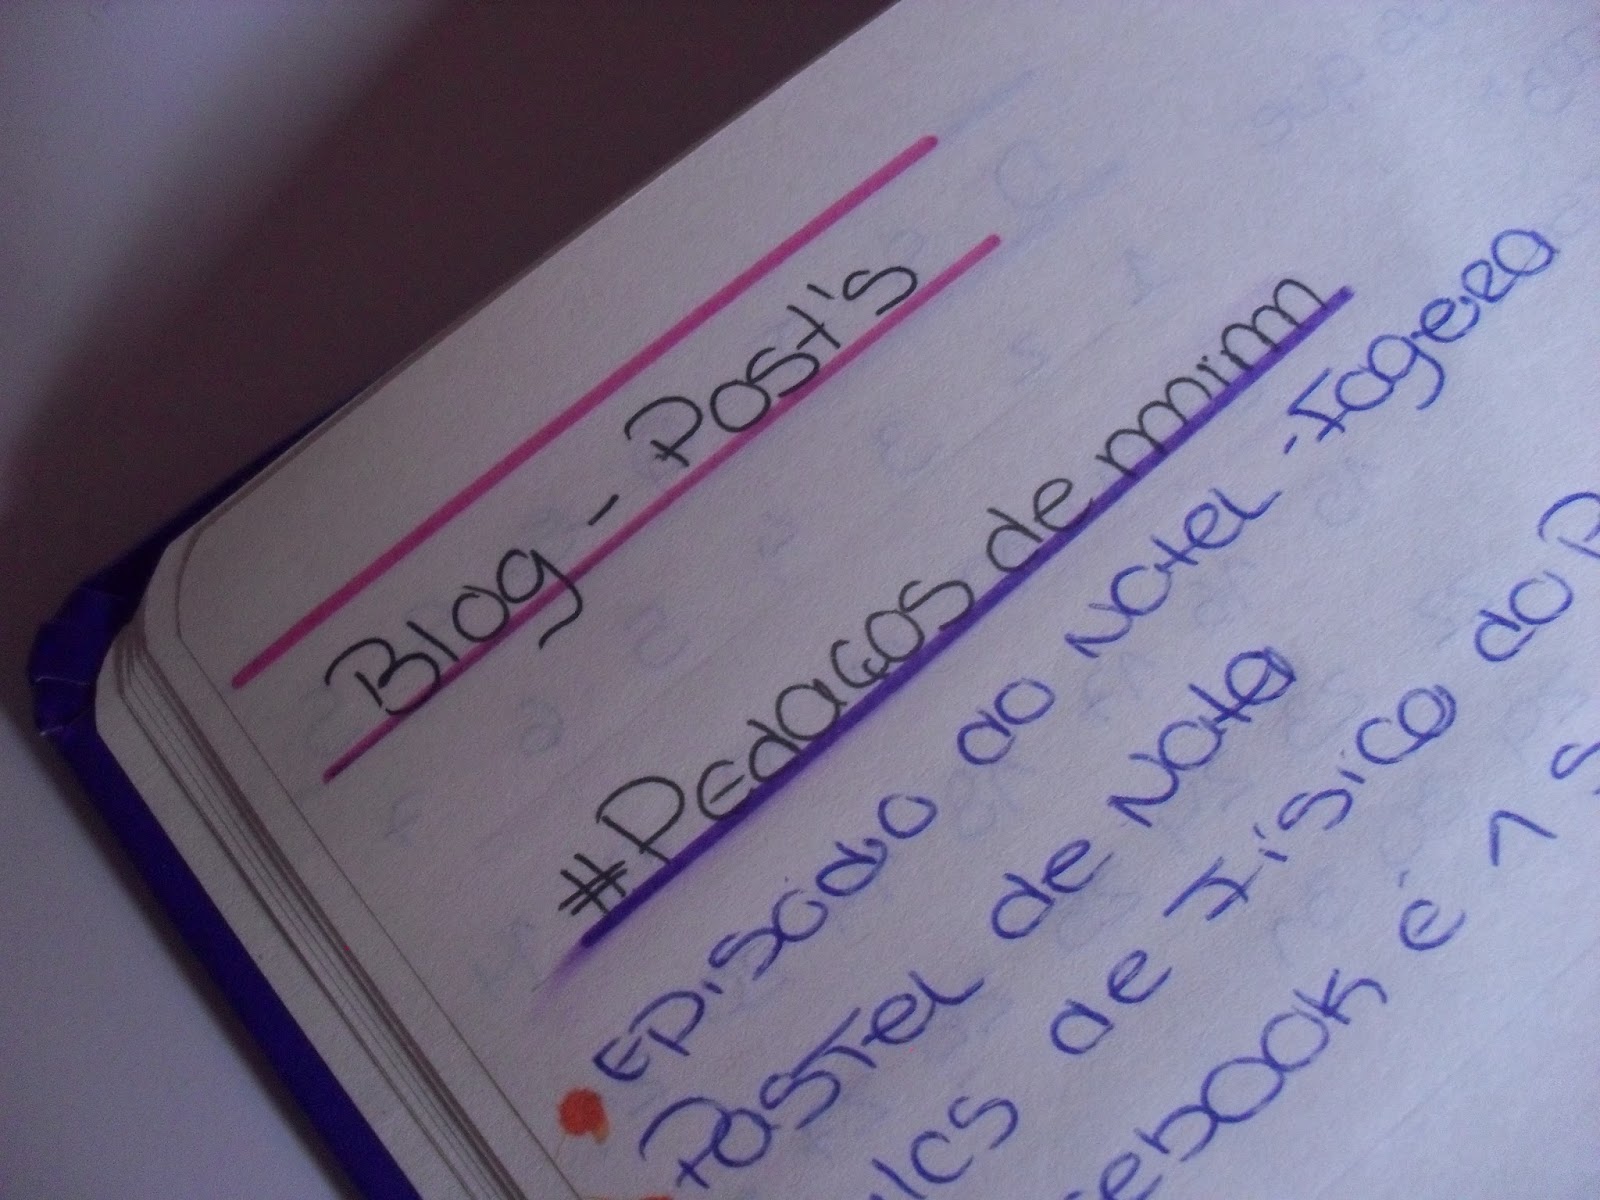 Blog - Post's
#Pedaços de mim
Episódio do Natel -
Postel de Nata
de Física do
ebook é 1